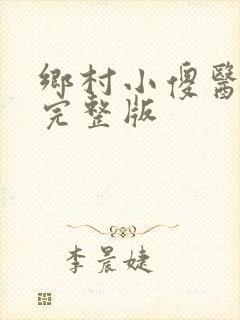 鄉村小傻醫
完整版
李晨婕